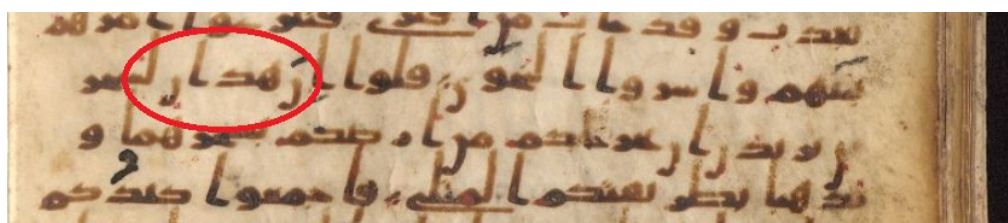 بعذب و قد خاب من افترى فتنزعوا امرهم
بينهم و اسروا النجوى قلوا ان هذان لسحر
ن يريدن ان يخرجكم من ارضكم بسحرهما و
يذهبا بطريقتكم المثلى فاجمعوا كيدكم